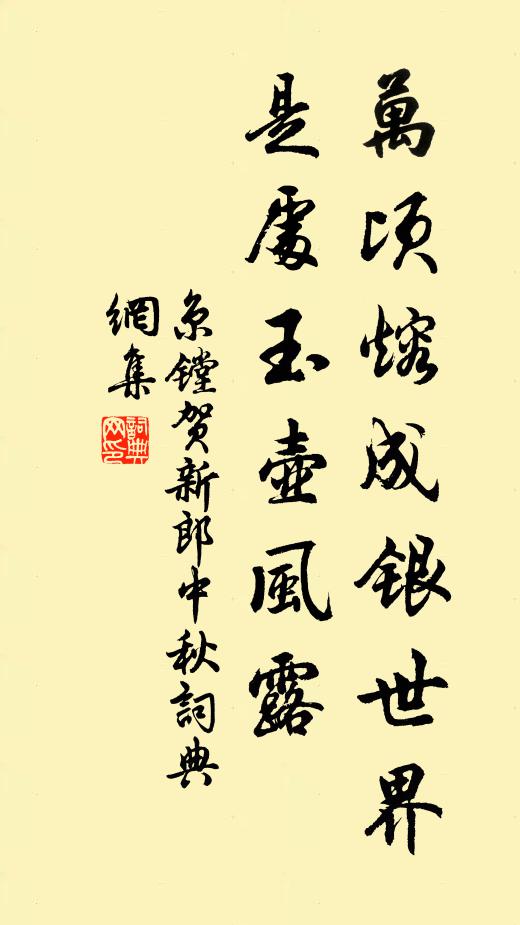 萬頃熔成銀世界
是處玉壺風露
京鏜賀新郎中秋詞典
網集
詞典網印